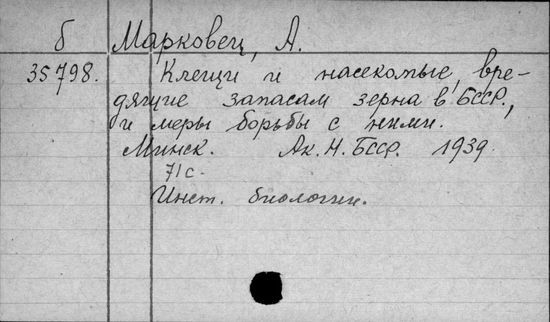 б Марковец, А.
35798. Клещи и насекомые, вре-
дящие запасам зерна в БССР,
и меры борьбы с ними.
Минск. Ак. Н. БССР. 1939
71 с.
Инст. биологии.